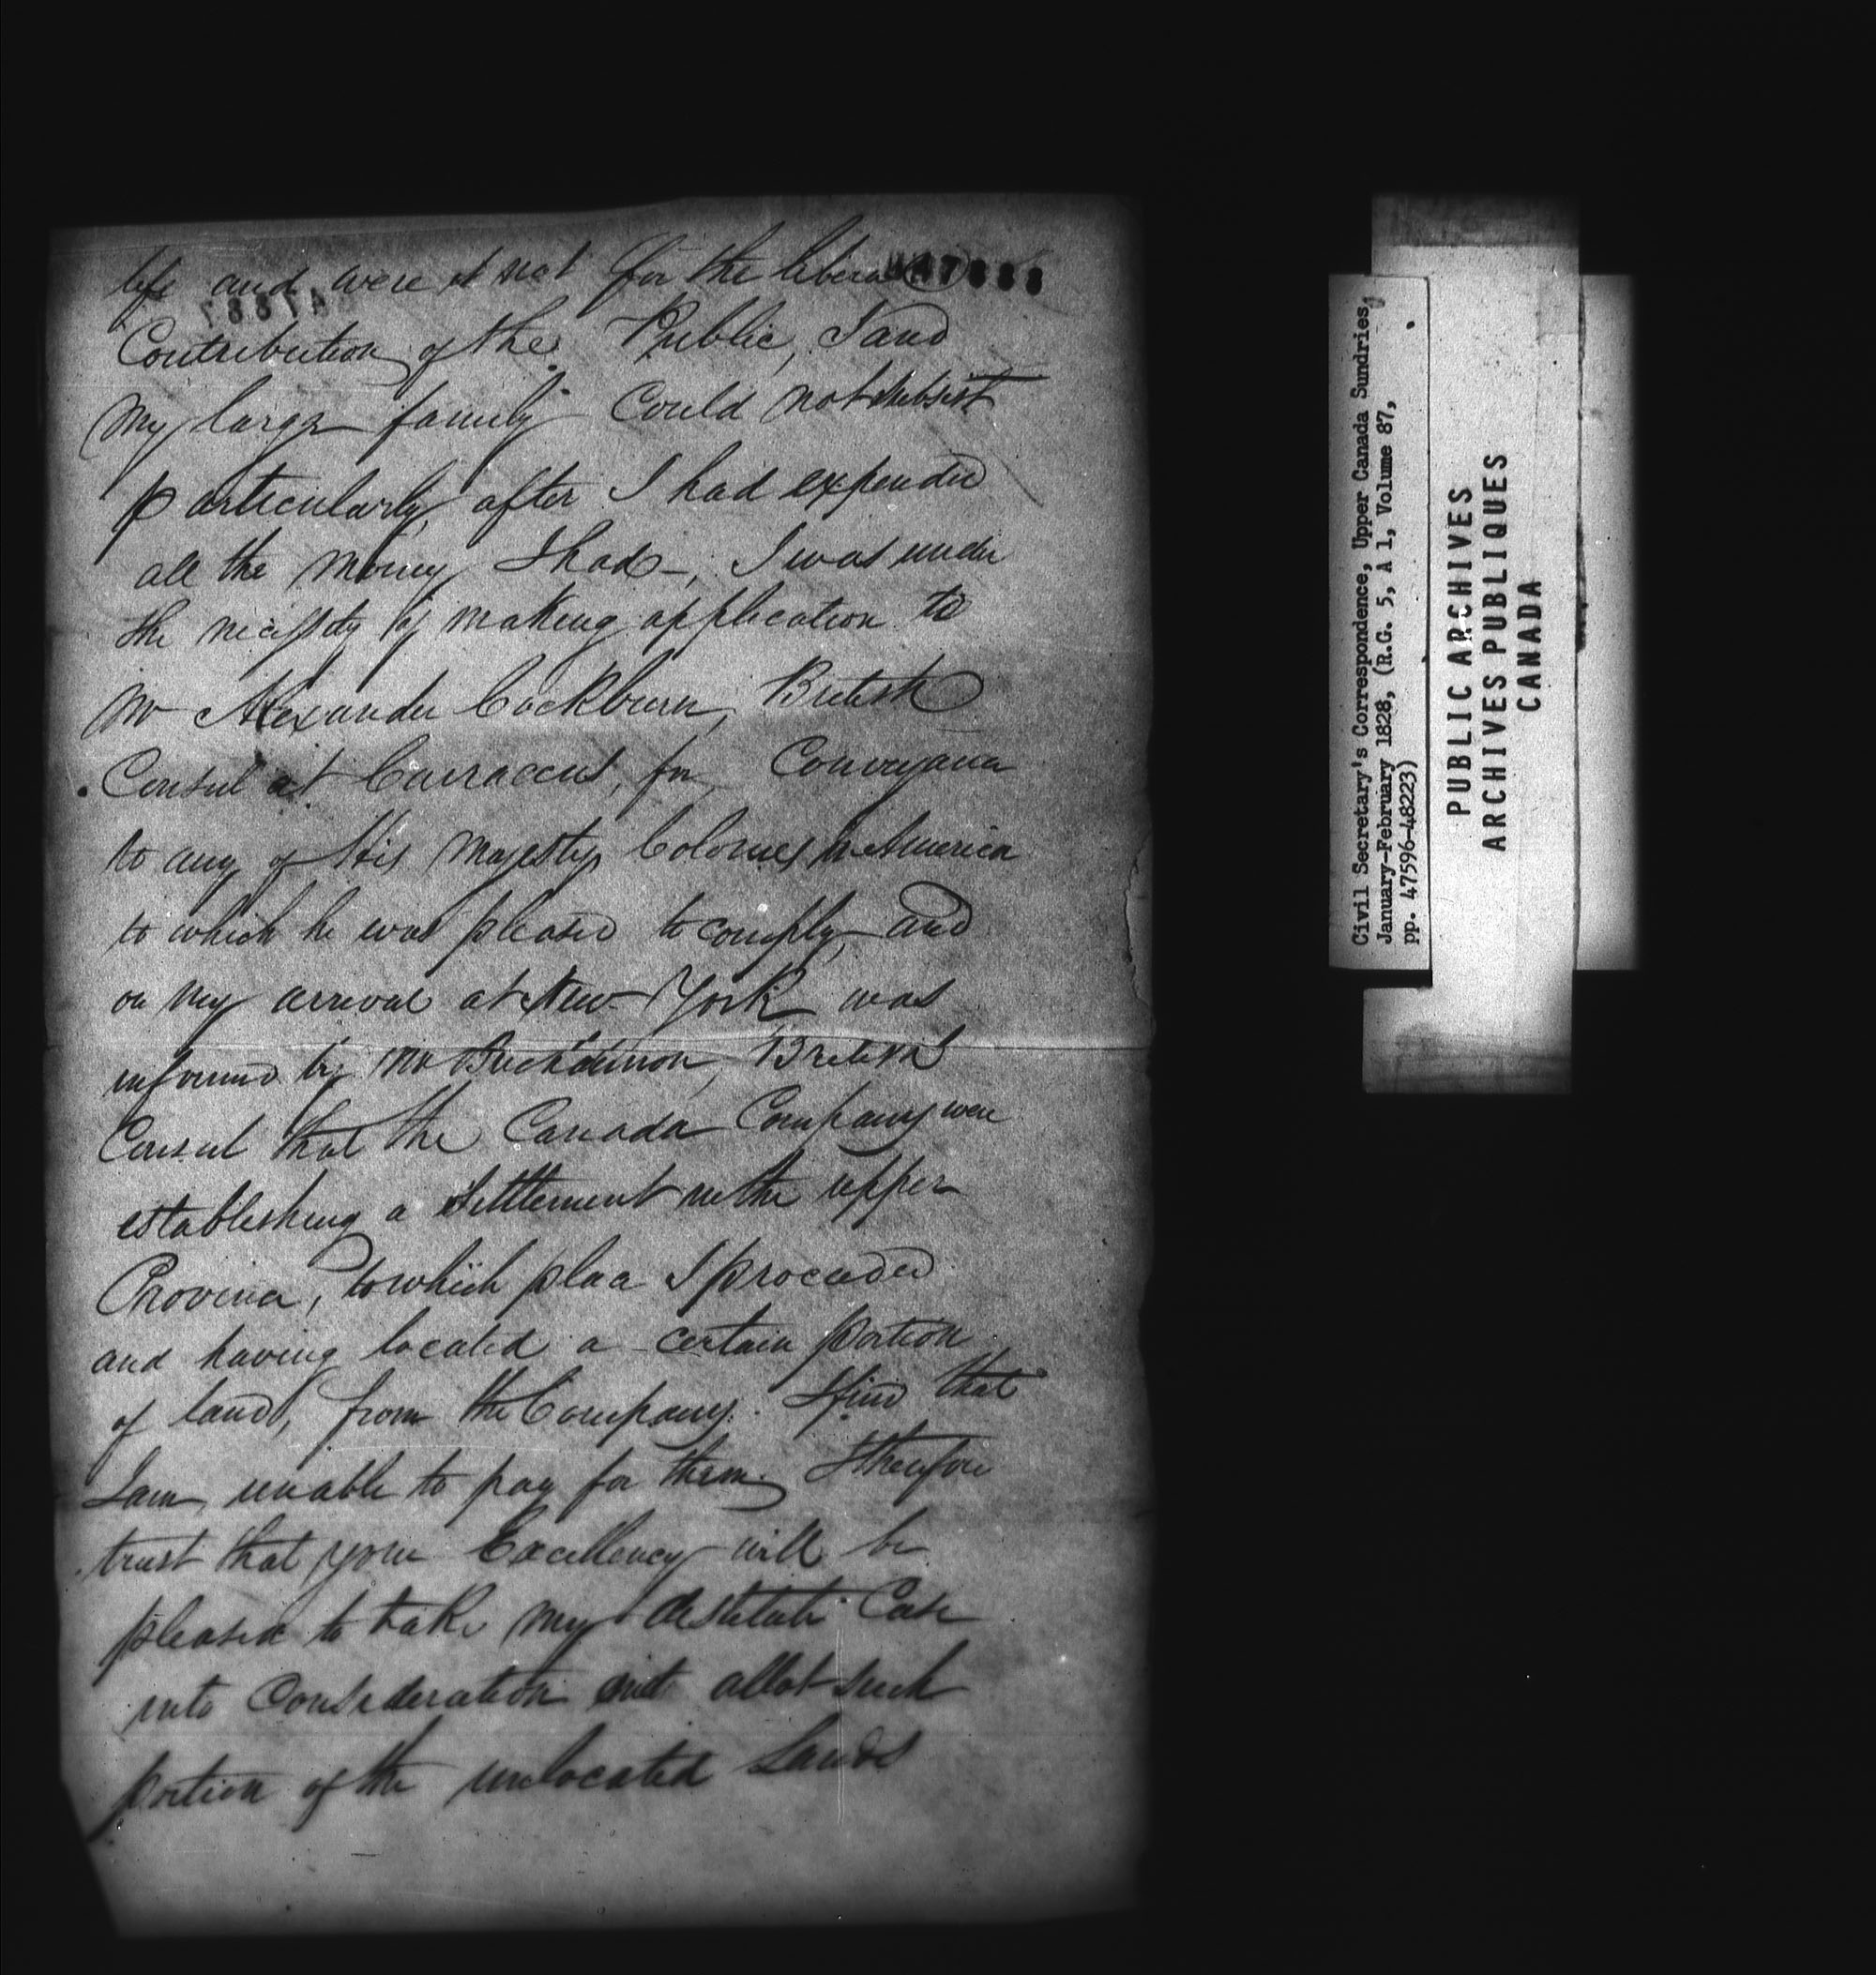 life and were it not for the liberal
47888
Contribution of the Public, I and
My large family Could not subsist
particularly after I had expended
all the Money I had -, I was under
the necessity of making application to
Mr Alexander Cockburn, British
Consul at Carraccus, for Conveyance
to any of His Majestys Colonies in America
to which he was pleased to comply, and
on my arrival at New-York was
informed by Mr Buchannon, British
Consul that the Canada Company were
establishing a Settlement in the upper
Province, to which place I proceeded
and having located a certain portion
of land, from the Company. I find that
I am, unable to pay for them. I therefore
trust that your Excellency will be
pleased to take my destitute Case
into Consideration and allot such
portion of the unlocated Lands
Civil Secretary's Correspondence, Upper Canada Sundries,
January-February 1828, (R.G. 5, A 1, Volume 87,
pp. 47596-48223)
PUBLIC ARCHIVES
ARCHIVES PUBLIQUES
CANADA